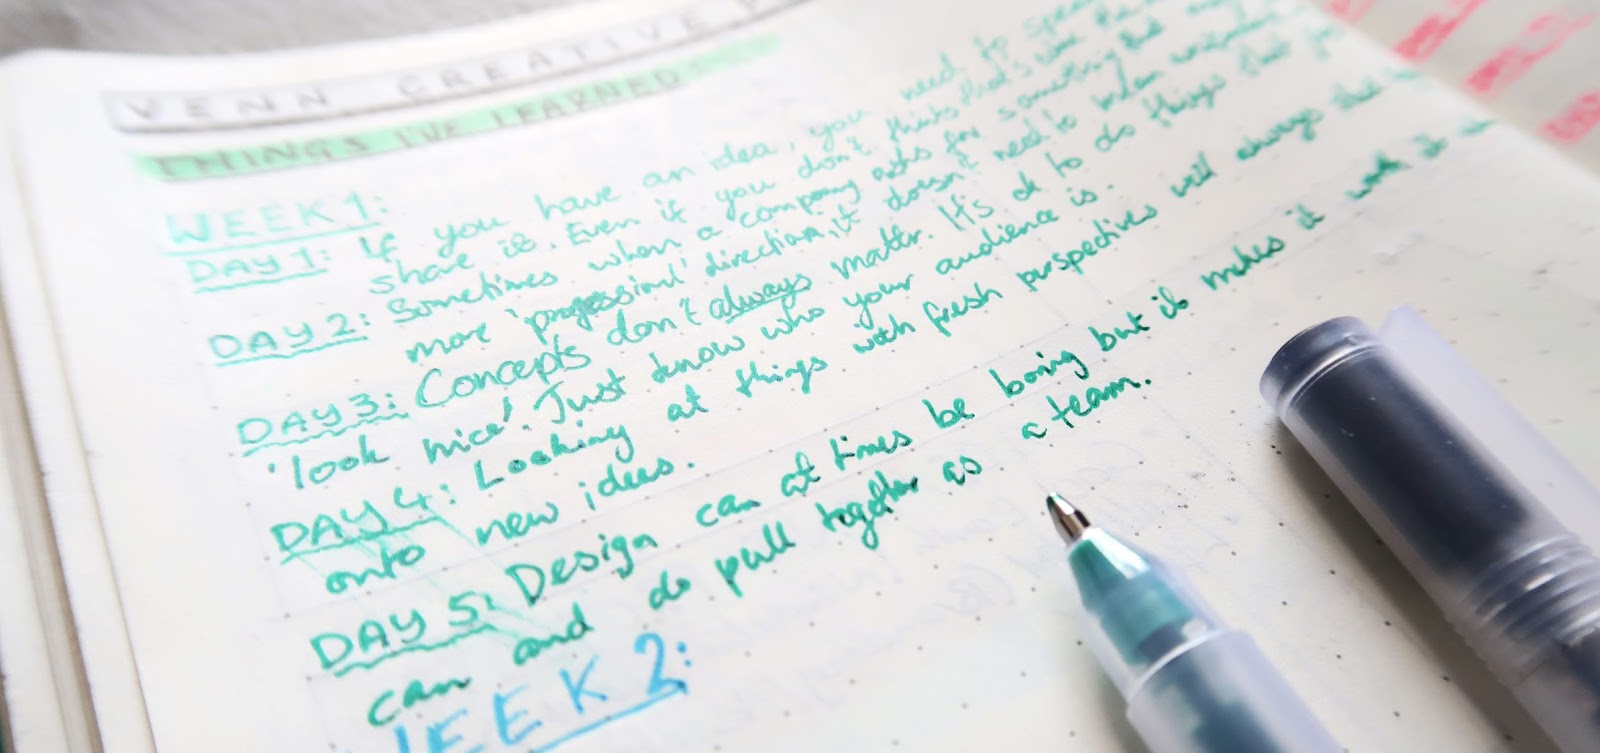 VENN CREATIVE
THINGS I'VE LEARNED:
WEEK 1:
DAY 1: If you have an idea, you need to
share it. Even if you don't think that's
DAY 2: Sometimes when a company asks for something that
more 'professional' direction, it doesn't need to mean
DAY 3: Concepts don't always matter. It's ok to do things that
'look nice'. Just know who your audience is.
DAY 4: Looking at things with fresh perspectives will always
onto new ideas.
DAY 5: Design can at times be boring but it makes it
can and do pull together as a team.
WEEK 2: